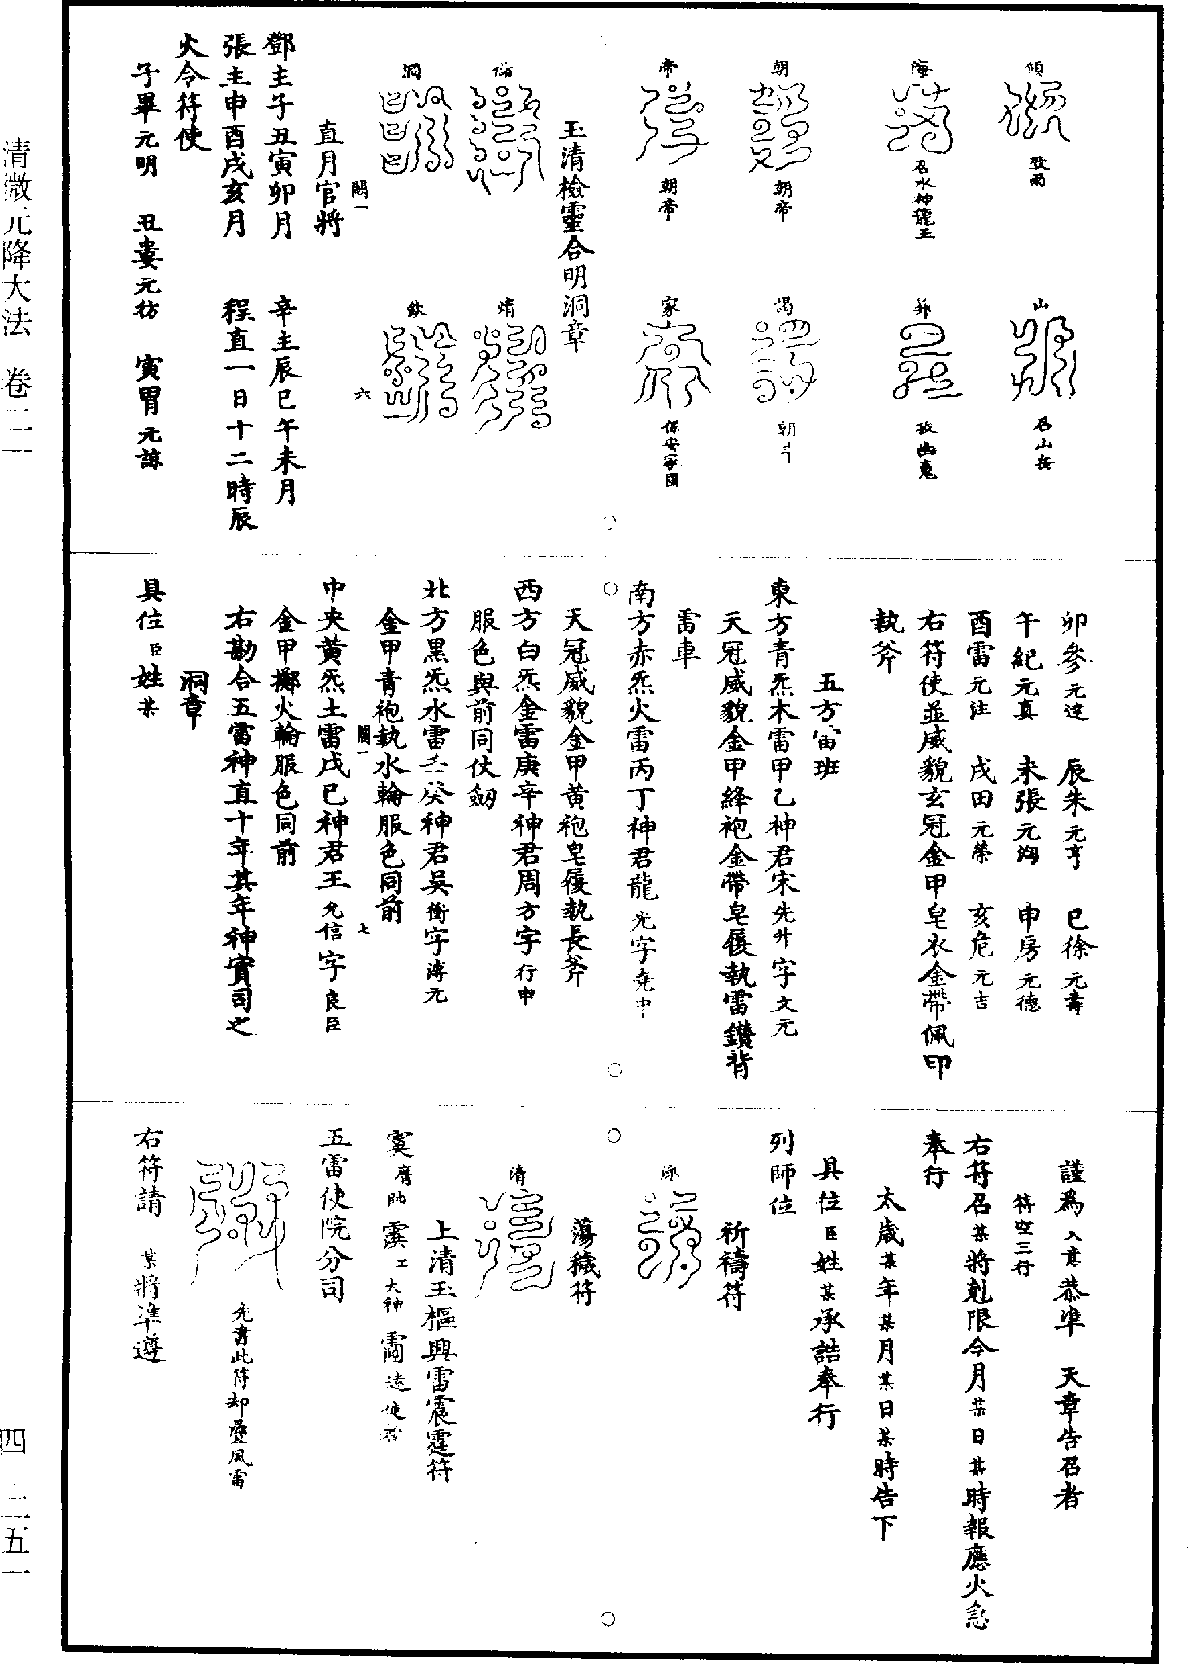 傾
致雨
山
召山岳
海
召水神龍王
鄷
攝幽鬼
朝
朝帝
謁
朝斗
帝
朝帝
家
保安家國
玉清檢靈合明洞章
洞
直月官將
鄧主子丑寅卯月　辛主辰巳午未月
張主申酉戌亥月　程直一日十二時辰
火令符使
子畢元明　丑婁元彷　寅胃元諒
卯參元達　辰朱元亨　巳徐元壽
午紀元真　未張元海　申房元德
酉雷元注　戌田元榮　亥危元吉
右符使並威貌玄冠金甲皂衣金帶佩印
執斧
五方雷班
東方青炁木雷甲乙神君宋先升字文元
天冠威貌金甲絳袍金帶皂履執雷鑽背
雷車
南方赤炁火雷丙丁神君龍光字堯中
天冠威貌金甲黃袍皂履執長斧
西方白炁金雷庚辛神君周方字行中
服色與前同仗劒
北方黑炁水雷壬癸神君吳衡字溥元
金甲青袍執水輪服色同前
中央黃炁土雷戊己神君王允信字良臣
金甲擲火輪服色同前
右勘合五雷神直十年其年神實司之
洞章
具位臣姓某
謹為入意恭準　天章告召者
符空三行
右符召某將剋限今月某日某時報應火急
奉行
太歲某年某月某日某時告下
具位臣姓某承誥奉行
列師位
祈禱符
蕩穢符
清
上清玉樞興雷震霆符
五雷使院分司
先書此符却疊風雷
右符請某將準遵
清微元降大法　卷二二
四—二五一